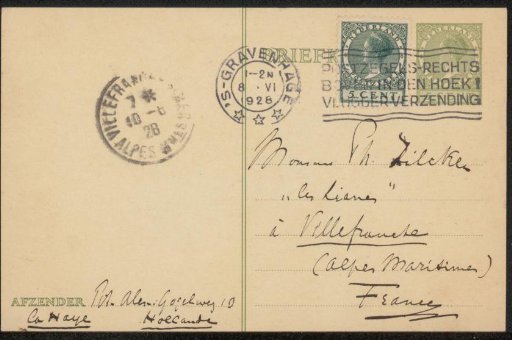 BRIEFKAART
NEDERLAND
NEDERLAND
5 CENT
'S-GRAVENHAGE
1-2N
8 VI
1928
POSTZEGELS RECHTS
BOVEN IN DEN HOEK!
VLUGGER VERZENDING
VILLEFRANCHE S MER
7 *
10 -6
28
ALPES MMES
Monsieur Ph. Zilcken
"les Lianes"
à Villefranche
(Alpes Maritimes)
France
AFZENDER
10
La Haye Hollande